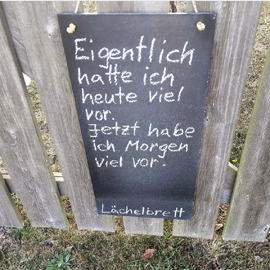 Eigentlich
hatte ich
heute viel
vor.
Jetzt habe
ich Morgen
viel vor.
Lächelbrett